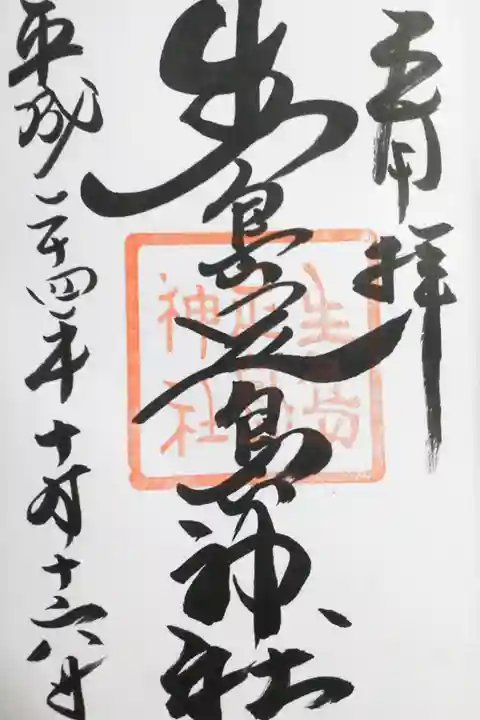 拝
生島足島神社
平成二十四年十月十六日
生島
足島
神社